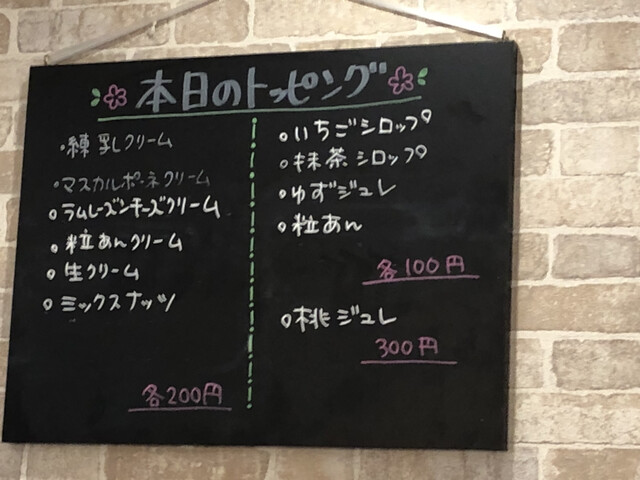 本日のトッピング
・練乳クリーム
・マスカルポーネクリーム
○ラムレーズンチーズクリーム
○粒あんクリーム
○生クリーム
○ミックスナッツ
各200円
○いちごシロップ
○抹茶シロップ
○ゆずジュレ
○粒あん
各100円
○桃ジュレ
300円